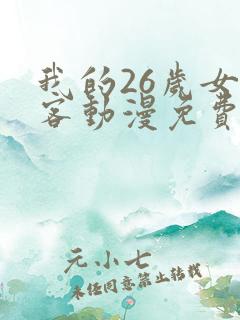 我的26歲女
客動漫免費
元小七
未经同意禁止转载